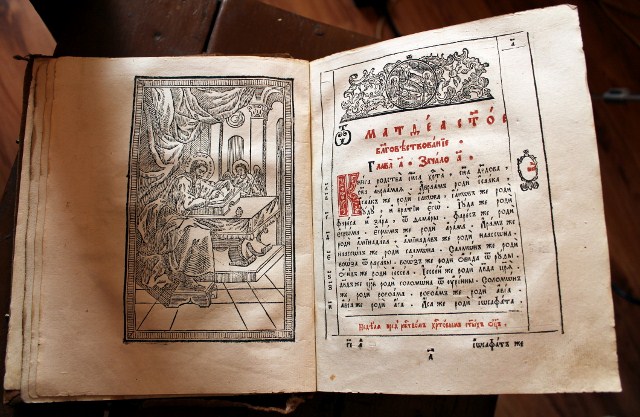 Ѿ МАТѲЕА СТ҃ОЕ
БЛ҃ГОВѢСТВОВАНІЕ
ГЛАВА̀ А҃. ЗАЧАЛО А҃.
Книга родства і҃иса хр҃та̀, сн҃а дв҃дова,
сн҃а авраамлѧ. Авраамъ роди ісаака.
Ісаакъ же роди іакѡва. іакѡвъ же роди
іюдꙋ и братию єгѡ. Іюда же роди
фареса и зара, ѿ ѳамары. фаресъ же роди
єсрѡма. єсрѡмъ же роди арама. Арамъ же
роди аминадава. аминадавъ же роди наассѡна.
наассѡнъ же роди салмѡна. Салмѡнъ же роди
вооза ѿ рахавы. воозъ же роди ѡвида ѿ рꙋѳы.
Ѡвидъ же роди іессеа. Іессей же роди дв҃да цр҃ѧ.
дв҃дъ же цр҃ь роди соломѡна ѿ ᲂуріины. Соломѡнъ
же роди ровоама. ровоамъ же роди авіа.
авіа же роди аса. Аса же роди іѡсафата.
Недѣлѧ пред̾ рж҃твомъ хр҃товымъ ст҃ыхъ ѻц҃ъ.
іѡсафатъ же